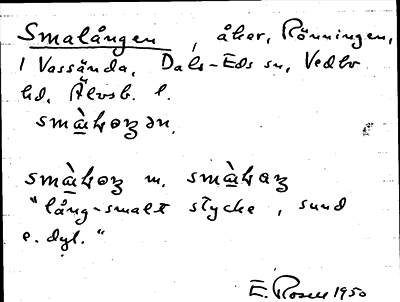 Smalången, åker, Rönningen,
1 Vassända, Dals-Eds sn, Vedbo
hd, Älvsb. l.
"lång-smalt stycke, sund
e. dyl."
E. Rosell 1950